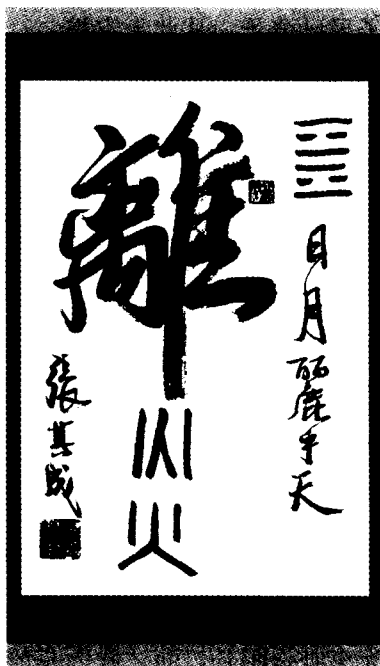 日月麗乎天
離
火火
張其成